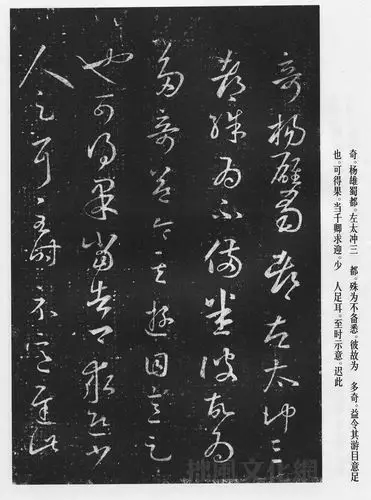 奇。杨雄蜀都。左太冲三　都。殊为不备悉。彼故为　多奇。益令其游目意足
也。可得果。当千卿求迎。少　人足耳。至时示意。迟此
奇楊雄蜀都左太沖三
都殊為不備悉彼故為
多奇益令其遊目意足
也可得果當告卿求迎少
人足耳至時示意遲此
文化網